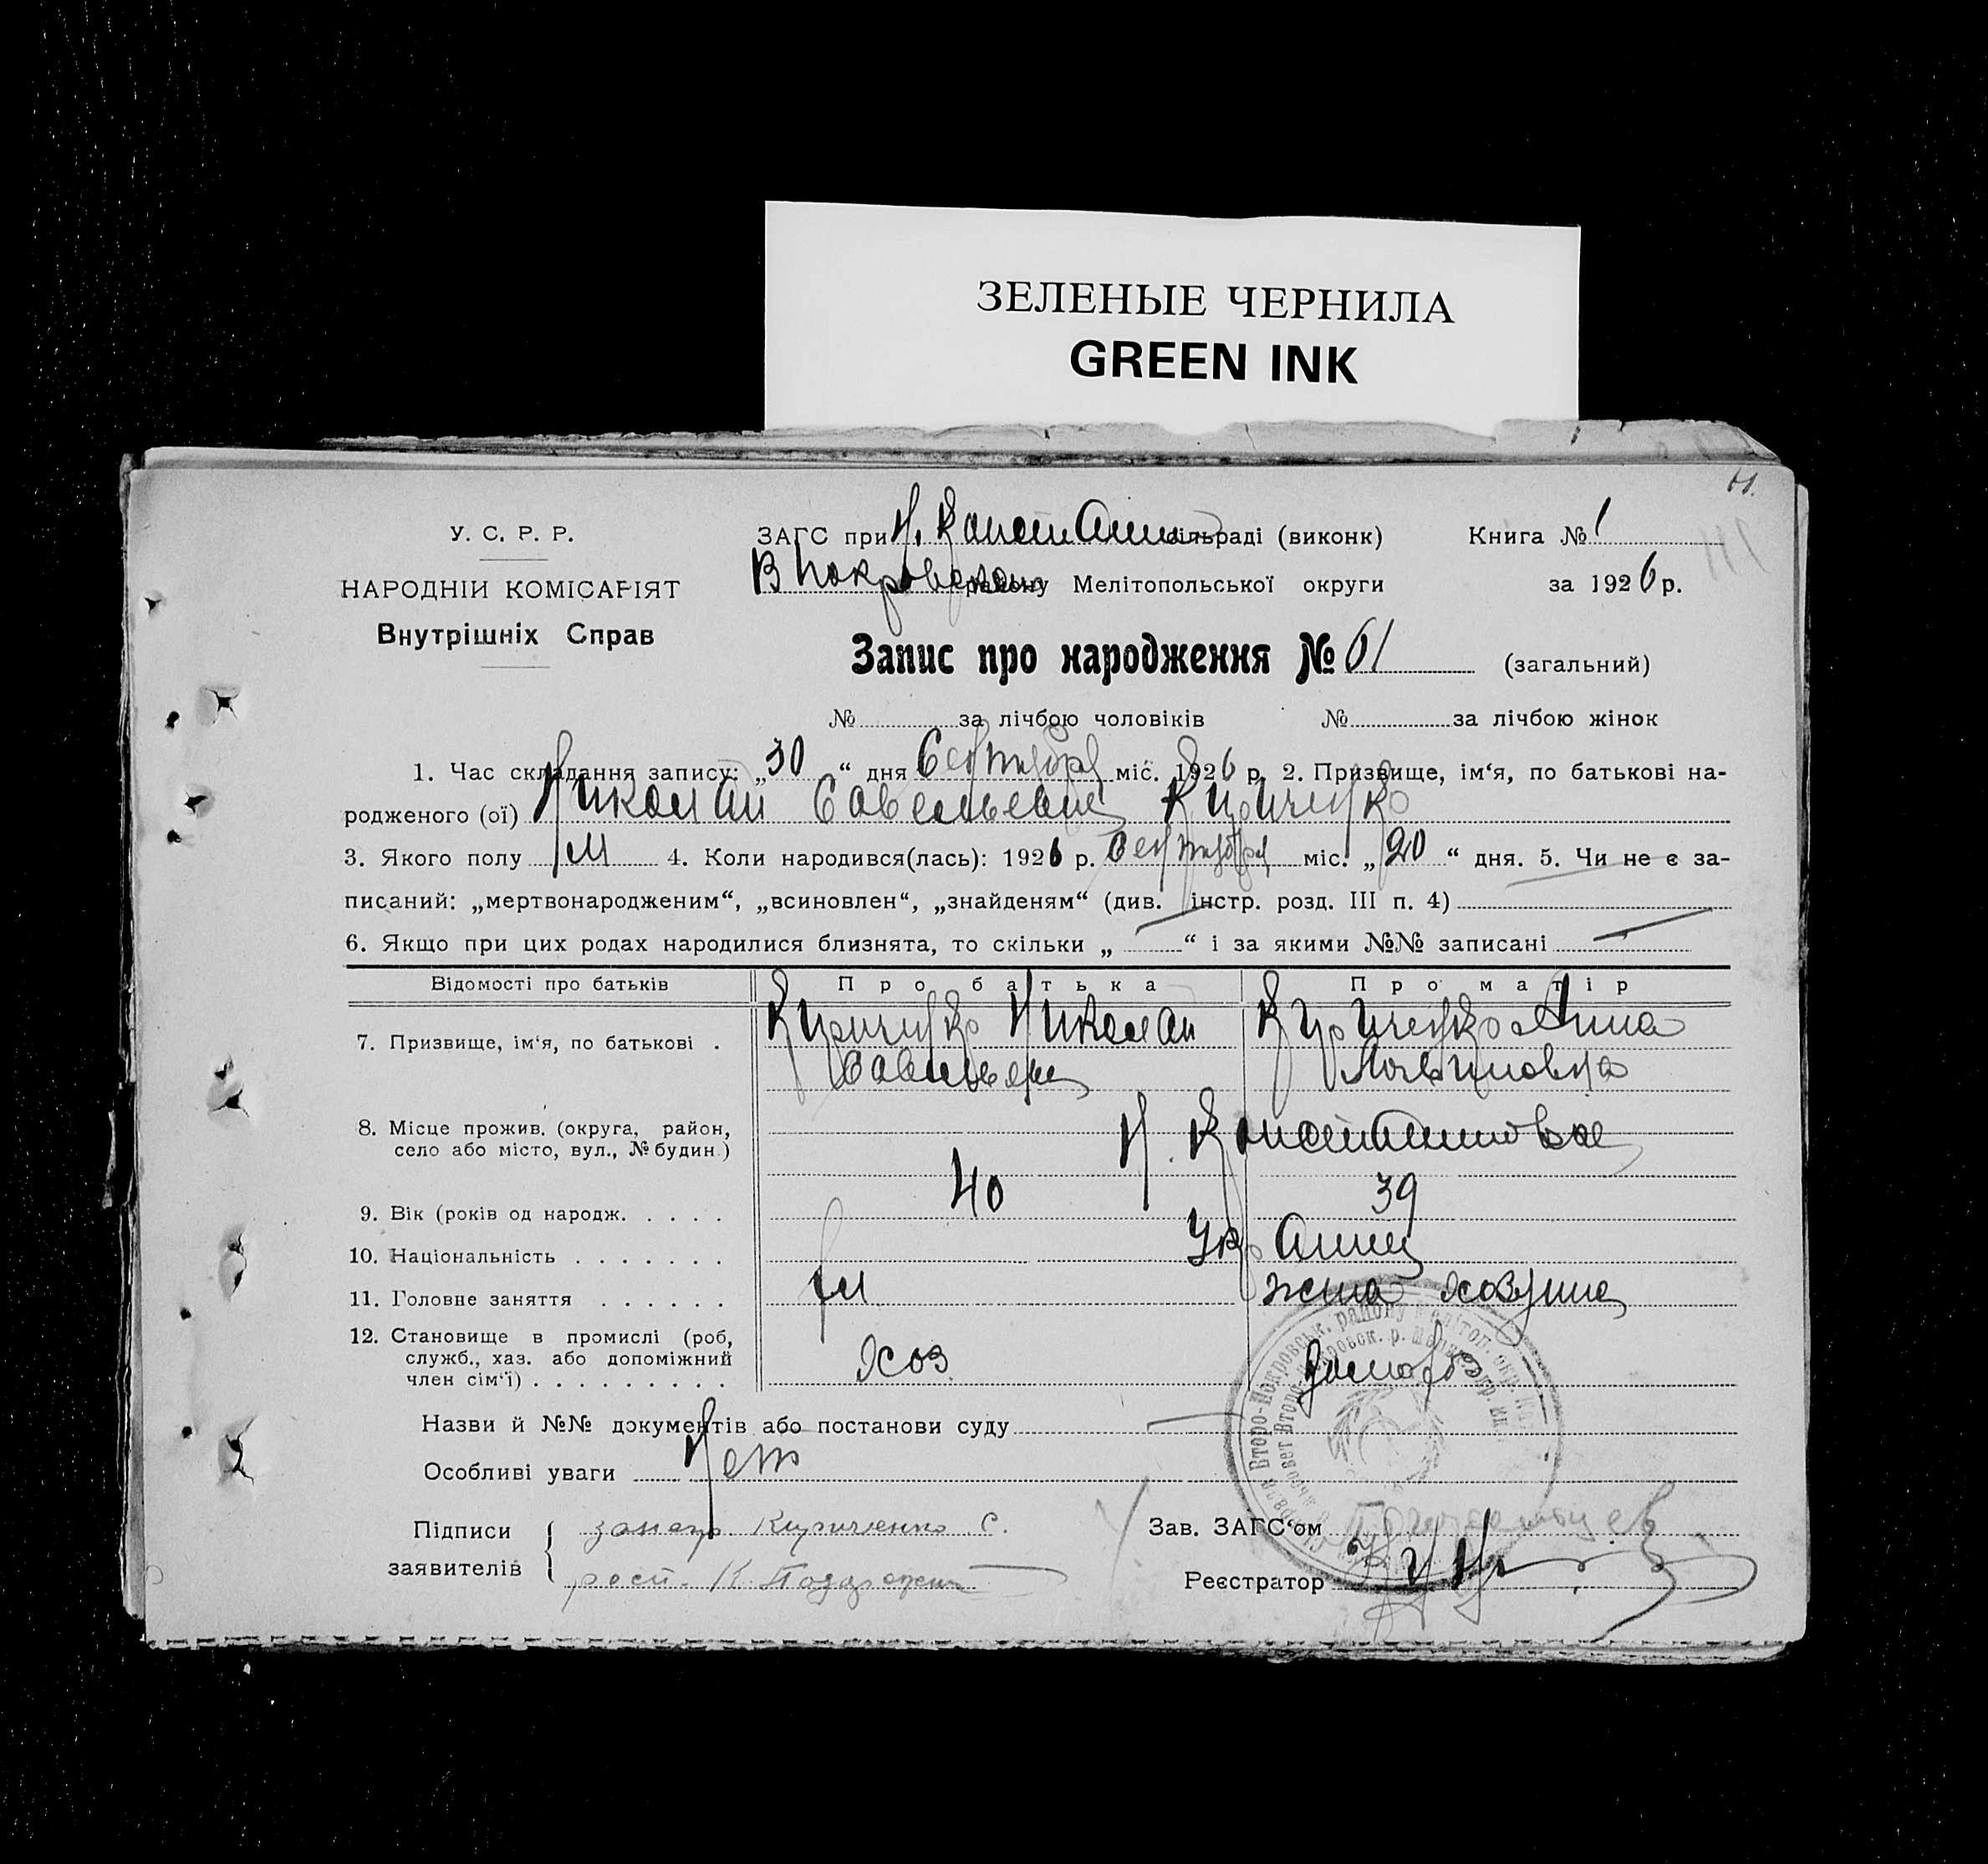 ЗЕЛЕНЫЕ ЧЕРНИЛА
GREEN INK
61.
У. С. Р. Р.
НАРОДНІЙ КОМІСАРІЯТ
Внутрішніх Справ
ЗАГС при Н. Констант сільраді (виконк) Книга № 1
В Покровского району Мелітопольської округи за 1926 р.
Запис про народження № 61 (загальний)
№ за лічбою чоловіків № за лічбою жінок
1. Час складання запису: „30“ дня Сентября міс. 1926 р. 2. Призвище, ім‘я, по батькові на-
родженого (ої) Николай Савельевич Кириченко
3. Якого полу м 4. Коли народився(лась): 1926 р. Сентября міс. „20“ дня. 5. Чи не є за-
писаний: „мертвонародженим“, „всиновлен“, „знайденям“ (див. інстр. розд. III п. 4)
6. Якщо при цих родах народилися близнята, то скільки „ “ і за якими №№ записані
Відомості про батьків Про батька Про матір
7. Призвище, ім‘я, по батькові . Кириченко Николай Кириченко Анна
8. Місце прожив. (округа, район,
село або місто, вул., № будин.) Н. Константиновка
9. Вік (років од народж. . . . . 40 39
10. Національність . . . . . . .
11. Головне заняття . . . . . . жена
12. Становище в промислі (роб,
служб., хаз. або допоміжний
член сім‘ї) . . . . . . . . . Хоз.
Назви й №№ документів або постанови суду
Особливі уваги Нет
Підписи
заявителів
Кириченко С.
Зав. ЗАГС‘ом
Реєстратор